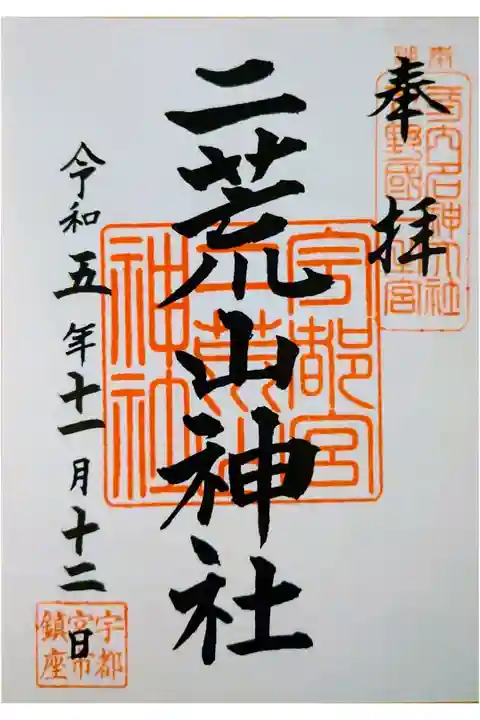 奉拝
内名神大社
野國
二荒山神社
宇都宮
二荒山
神社
令和五年十一月十二日
宇都
宮市
鎮座